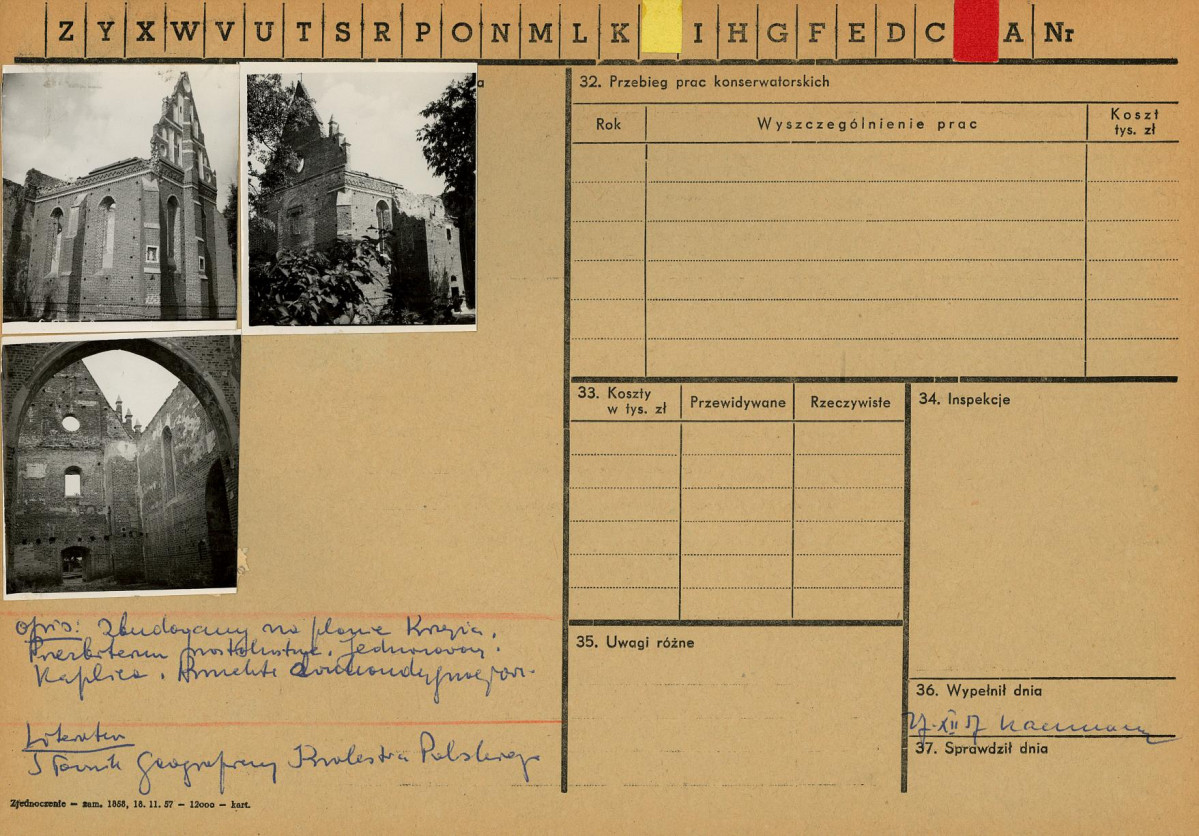 Z Y X W V U T S R P O N M L K I H G F E D C A Nr
a
32. Przebieg prac konserwatorskich
Rok
Wyszczególnienie prac
Koszt
tys. zł
33. Koszty
w tys. zł
Przewidywane
Rzeczywiste
34. Inspekcje
opis: Zbudowany na planie Krzyża.
Prezbiterium prostokątne. Jednonawowy.
Kaplica.
35. Uwagi różne
36. Wypełnił dnia
XII 57
37. Sprawdził dnia
Literatura
Słownik Geograficzny Królestwa Polskiego
Zjednoczenie — zam. 1858, 18. 11. 57 — 12000 — kart.